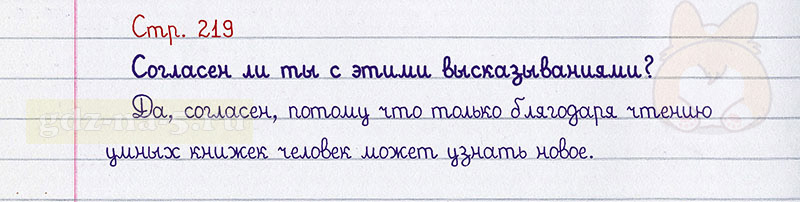 Стр. 219
Согласен ли ты с этими высказываниями?
Да, согласен, потому что только благодаря чтению
умных книжек человек может узнать новое.